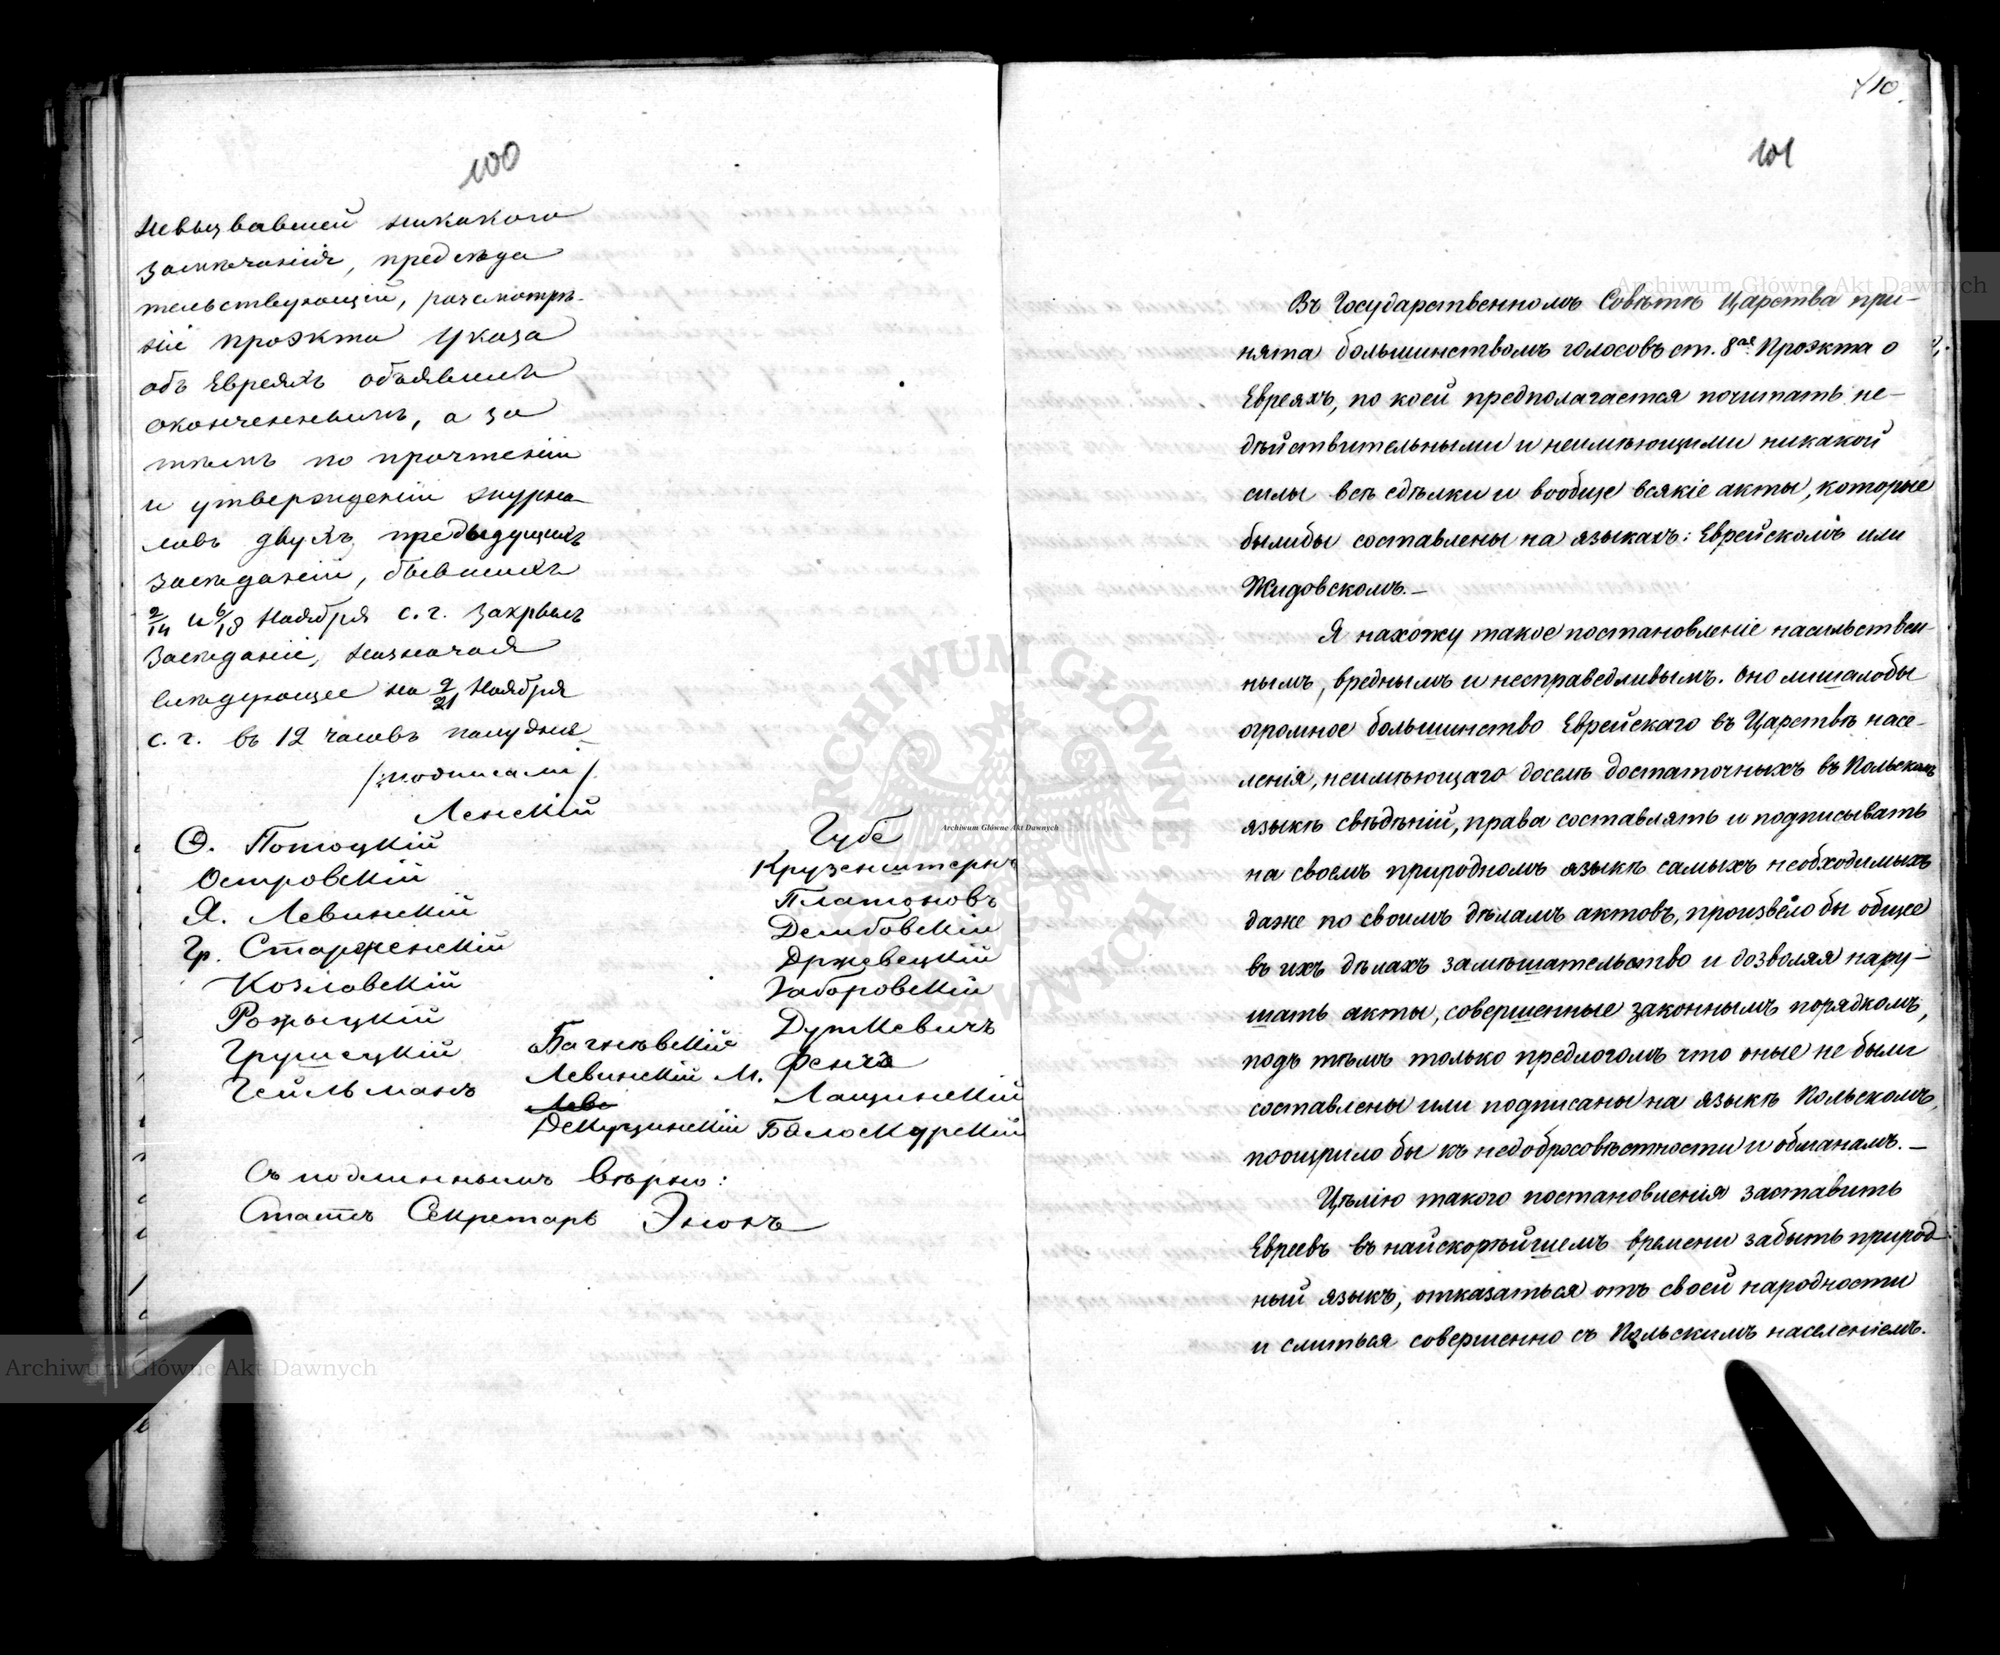 100
невызвавшей никакого
замѣчанія, предсѣда
тельствующій, разсмотрѣ-
ніе проэкта Указа
объ Евреяхъ объявилъ
оконченнымъ, а за
тѣмъ по прочтеніи
и утвержденіи журна
ловъ двухъ предыдущихъ
засѣданій, бывшихъ
2/14 и 6/18 Ноября с. г. закрылъ
Засѣданіе, назначая
слѣдующее на 9/21 Ноября
с. г. въ 12 часовъ полудня
/:подписали/
Ленскій
Ѳ. Потоцкій
Островскій
Я. Левинскій
Гр. Старженскій
Козловскій
Рожыцкій
Грушецкій
Гейльманъ
Багнѣвскій
Левинскій М.
Лев
Декуцинскій
Губе
Крузенштернъ
Платоновъ
Дембовскій
Држевецкій
Заборовскій
Дуткевичъ
Фенчъ
Лащинскій
Бѣлоскурскій
Съ подлиннымъ вѣрно:
Статсъ Секретарь Энохъ
110.
101
Въ Государственномъ Совѣтѣ Царства при-
нята большинствомъ голосовъ ст. 8ая Проэкта о
Евреяхъ, по коей предполагается почитать не-
дѣйствительными и неимѣющими никакой
силы всѣ сдѣлки и вообще всякіе акты, которые
былибы составлены на языкахъ: Еврейскомъ или
Жидовскомъ.—
Я нахожу такое постановленіе насильствен-
нымъ, вреднымъ и несправедливымъ. Оно лишалобы
огромное большинство Еврейскаго въ Царствѣ насе-
ленія, неимѣющаго доселѣ достаточныхъ въ Польскомъ
языкѣ свѣдѣній, права составлять и подписывать
на своемъ природномъ языкѣ самыхъ необходимыхъ
даже по своимъ дѣламъ актовъ, произвело бы общее
въ ихъ дѣлахъ замѣшательство и дозволяя нару-
шать акты, совершенные законнымъ порядкомъ,
подъ тѣмъ только предлогомъ что оные не были
составлены или подписаны на языкѣ Польскомъ,
поощрило бы къ недобросовѣстности и обманамъ.—
Цѣлію такого постановленія заставить
Евреевъ въ найскорѣйшемъ времени забыть природ
ный языкъ, отказаться отъ своей народности
и слиться совершенно съ Польскимъ населеніемъ.
Archiwum Główne Akt Dawnych
Archiwum Główne Akt Dawnych
Archiwum Główne Akt Dawnych
ARCHIWUM GŁÓWNE AKT DAWNYCH